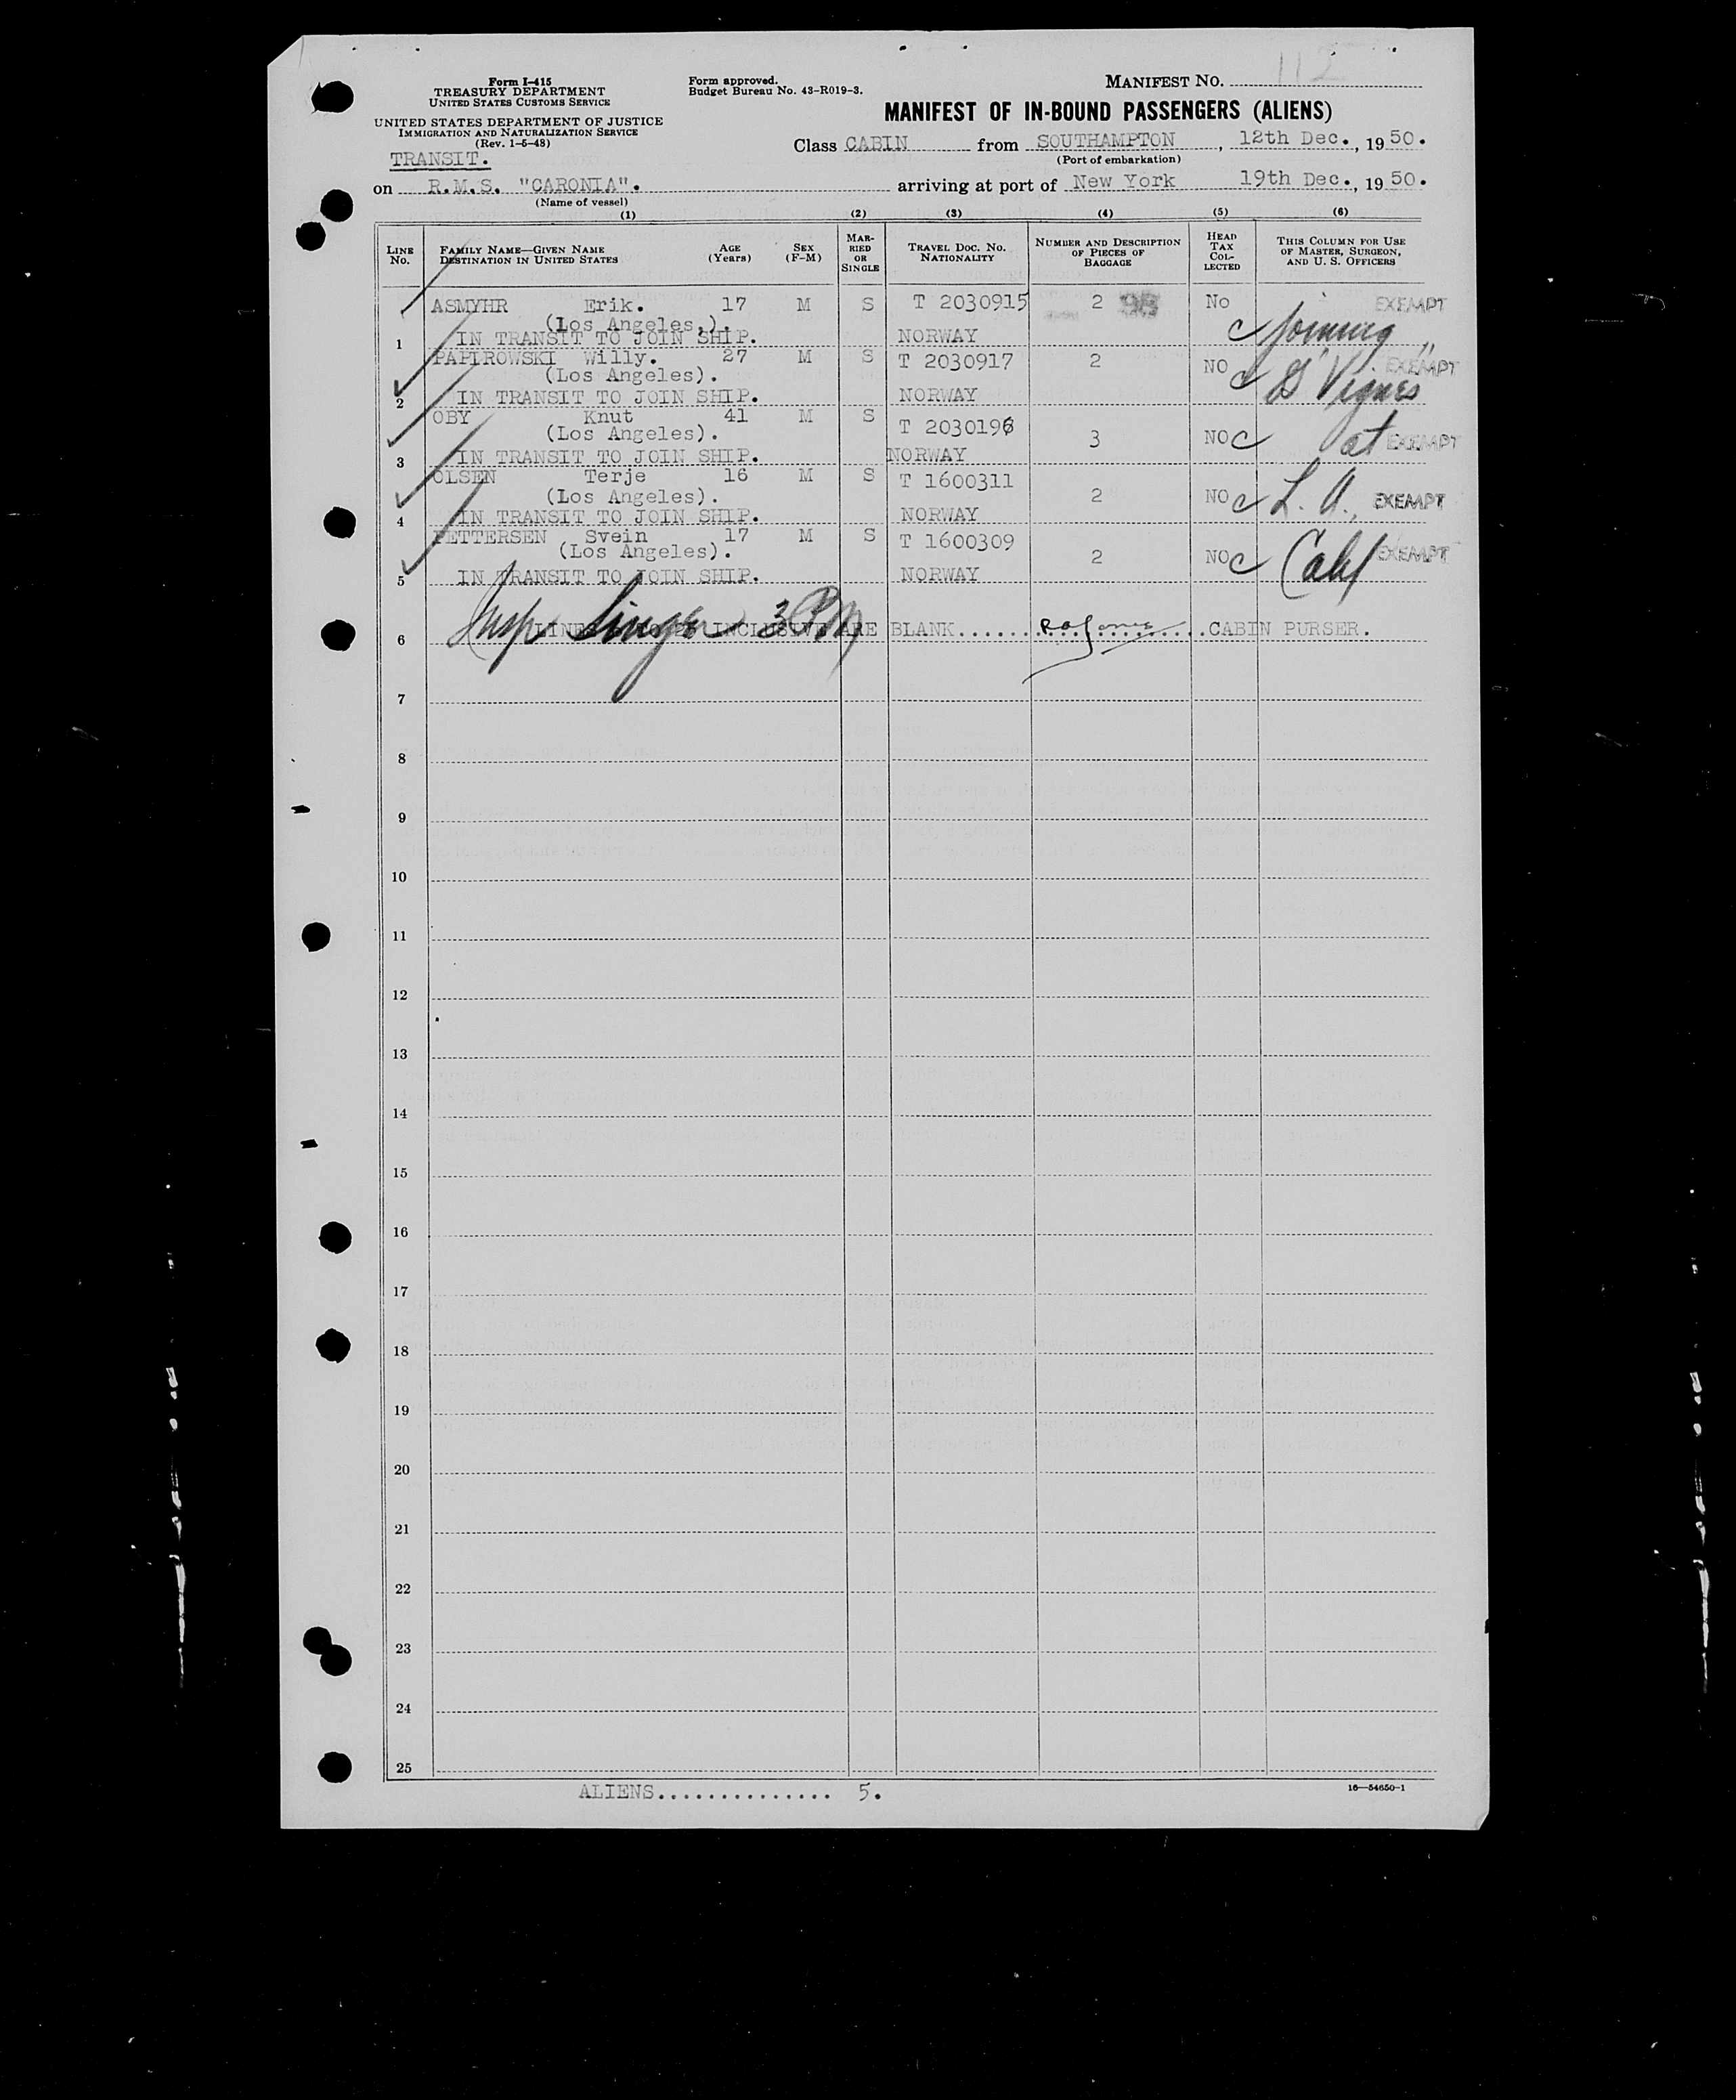 Form I-415
TREASURY DEPARTMENT
UNITED STATES CUSTOMS SERVICE
UNITED STATES DEPARTMENT OF JUSTICE
IMMIGRATION AND NATURALIZATION SERVICE
(Rev. 1-5-48)
Form approved.
Budget Bureau No. 43-R019-3.
MANIFEST NO. 112
MANIFEST OF IN-BOUND PASSENGERS (ALIENS)
TRANSIT.
Class CABIN from SOUTHAMPTON, 12th Dec., 1950.
(Port of embarkation)
on R.M.S. "CARONIA". arriving at port of New York 19th Dec., 1950.
(Name of vessel)
(1) (2) (3) (4) (5) (6)
LINE No. FAMILY NAME—GIVEN NAME DESTINATION IN UNITED STATES AGE (Years) SEX (F-M) MARRIED OR SINGLE TRAVEL DOC. NO. NATIONALITY NUMBER AND DESCRIPTION OF PIECES OF BAGGAGE HEAD TAX COLLECTED THIS COLUMN FOR USE OF MASTER, SURGEON, AND U. S. OFFICERS
ASMYHR Erik. 17 M S T 2030915 2 No EXEMPT
(Los Angeles,). joining
1 IN TRANSIT TO JOIN SHIP. NORWAY
PAPIROWSKI Willy. 27 M S T 2030917 2 NO EXEMPT
(Los Angeles).
2 IN TRANSIT TO JOIN SHIP. NORWAY
OBY Knut 41 M S T 2030196 3 NO at EXEMPT
(Los Angeles).
3 IN TRANSIT TO JOIN SHIP. NORWAY
OLSEN Terje 16 M S T 1600311 2 NO L. A., EXEMPT
(Los Angeles).
4 IN TRANSIT TO JOIN SHIP. NORWAY
PETTERSEN Svein 17 M S T 1600309 2 NO Calif EXEMPT
(Los Angeles).
5 IN TRANSIT TO JOIN SHIP. NORWAY
Insp Singer 3 PM
6 LINES INCLUSIVE ARE BLANK CABIN PURSER.
7
8
9
10
11
12
13
14
15
16
17
18
19
20
21
22
23
24
25
ALIENS............... 5.
16—54650-1